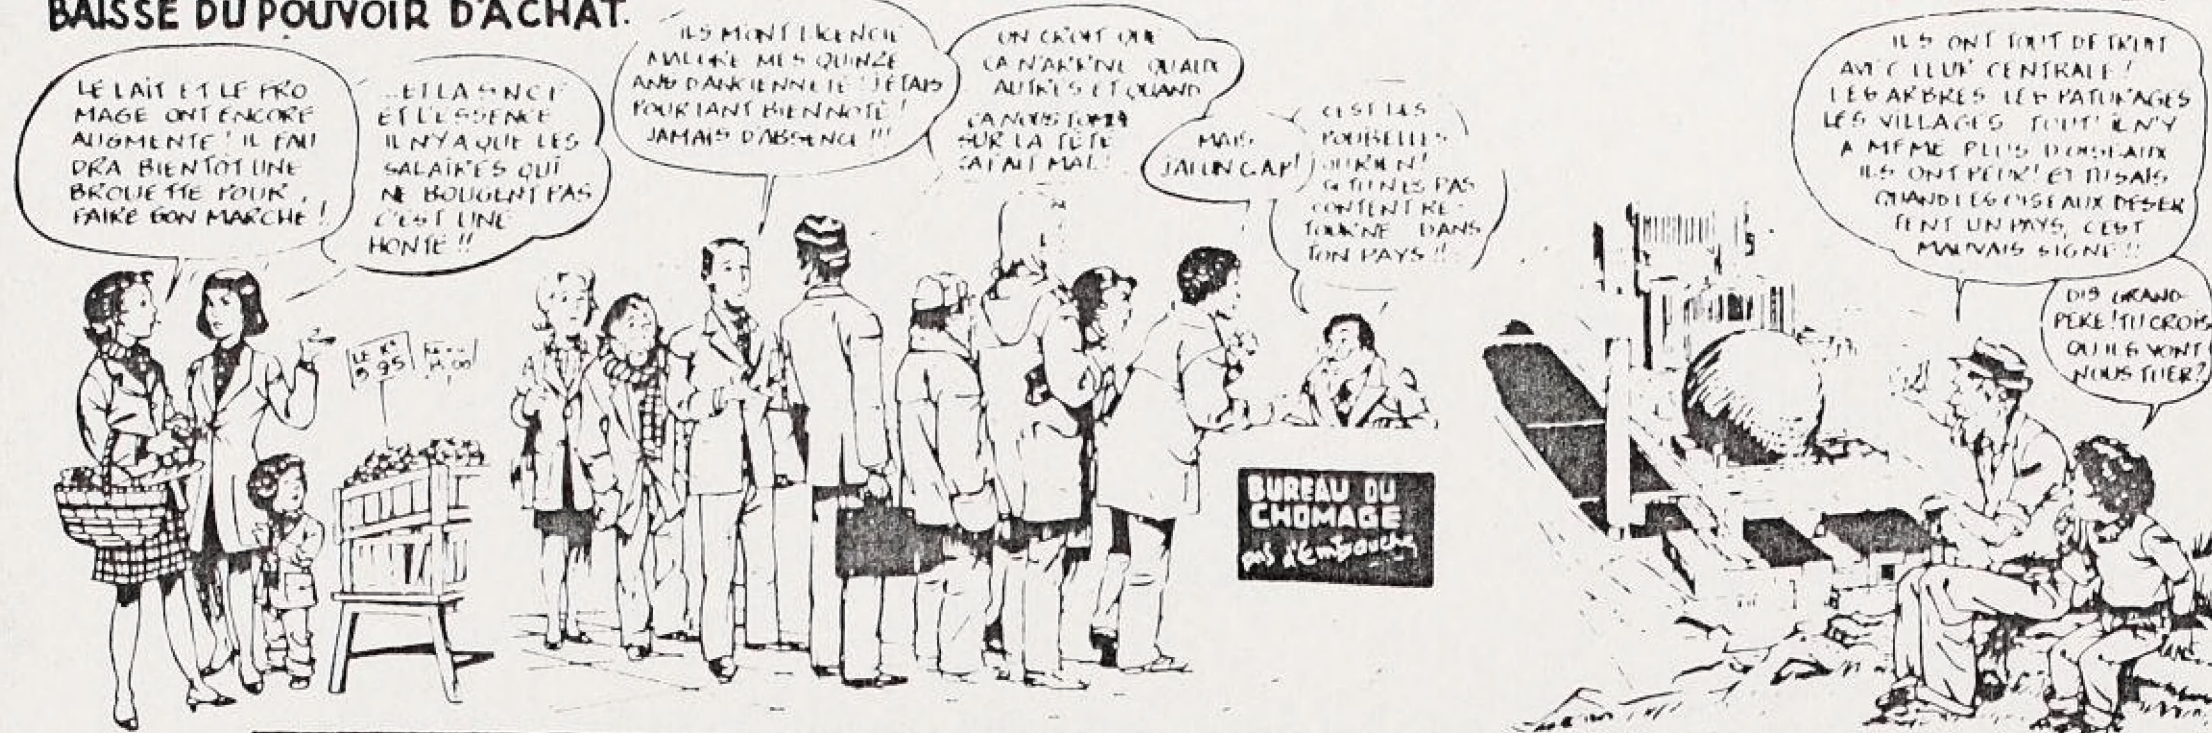 BAISSE DU POUVOIR D'ACHAT.
LE LAIT ET LE FRO
MAGE ONT ENCORE
AUGMENTE ! IL FAU
DRA BIENTOT UNE
BROUETTE POUR
FAIRE SON MARCHE !
...ET LA SNCF
ET L'ESSENCE
IL N'Y A QUE LES
SALAIRES QUI
NE BOUGENT PAS
C'EST UNE
HONTE !!
ILS M'ONT LICENCIE
MALGRE MES QUINZE
ANS D'ANCIENNETE ! J'ETAIS
POURTANT BIEN NOTE !
JAMAIS D'ABSENCE !!!
ON CROIT QUE
CA N'ARRIVE QU'AUX
AUTRES ET QUAND
CA NOUS TOMBE
SUR LA TÊTE
CA FAIT MAL !
MAIS
J'AI UN C.A.P !
C'EST LES
POUBELLES
OU RIEN !
SI TU N'ES PAS
CONTENT RE-
TOURNE DANS
TON PAYS !!
LE K°
5 95
BUREAU DU
CHOMAGE
pas d'embauche
ILS ONT TOUT DETRUIT
AVEC LEUR CENTRALE !
LES ARBRES LES PATURAGES
LES VILLAGES TOUT ! IL N'Y
A MEME PLUS D'OISEAUX
ILS ONT PEUR ! ET TU SAIS
QUAND LES OISEAUX DESER
TENT UN PAYS, C'EST
MAUVAIS SIGNE !!
DIS GRAND-
PERE ! TU CROIS
QU'ILS VONT
NOUS TUER ?